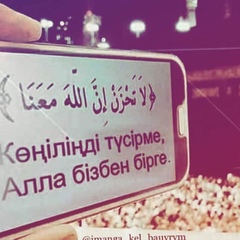 ﴿لَا تَحْزَنْ إِنَّ اللَّهَ مَعَنَا﴾
Көңіліңді түсірме,
Алла бізбен бірге.
@imanga_kel_bauyrym